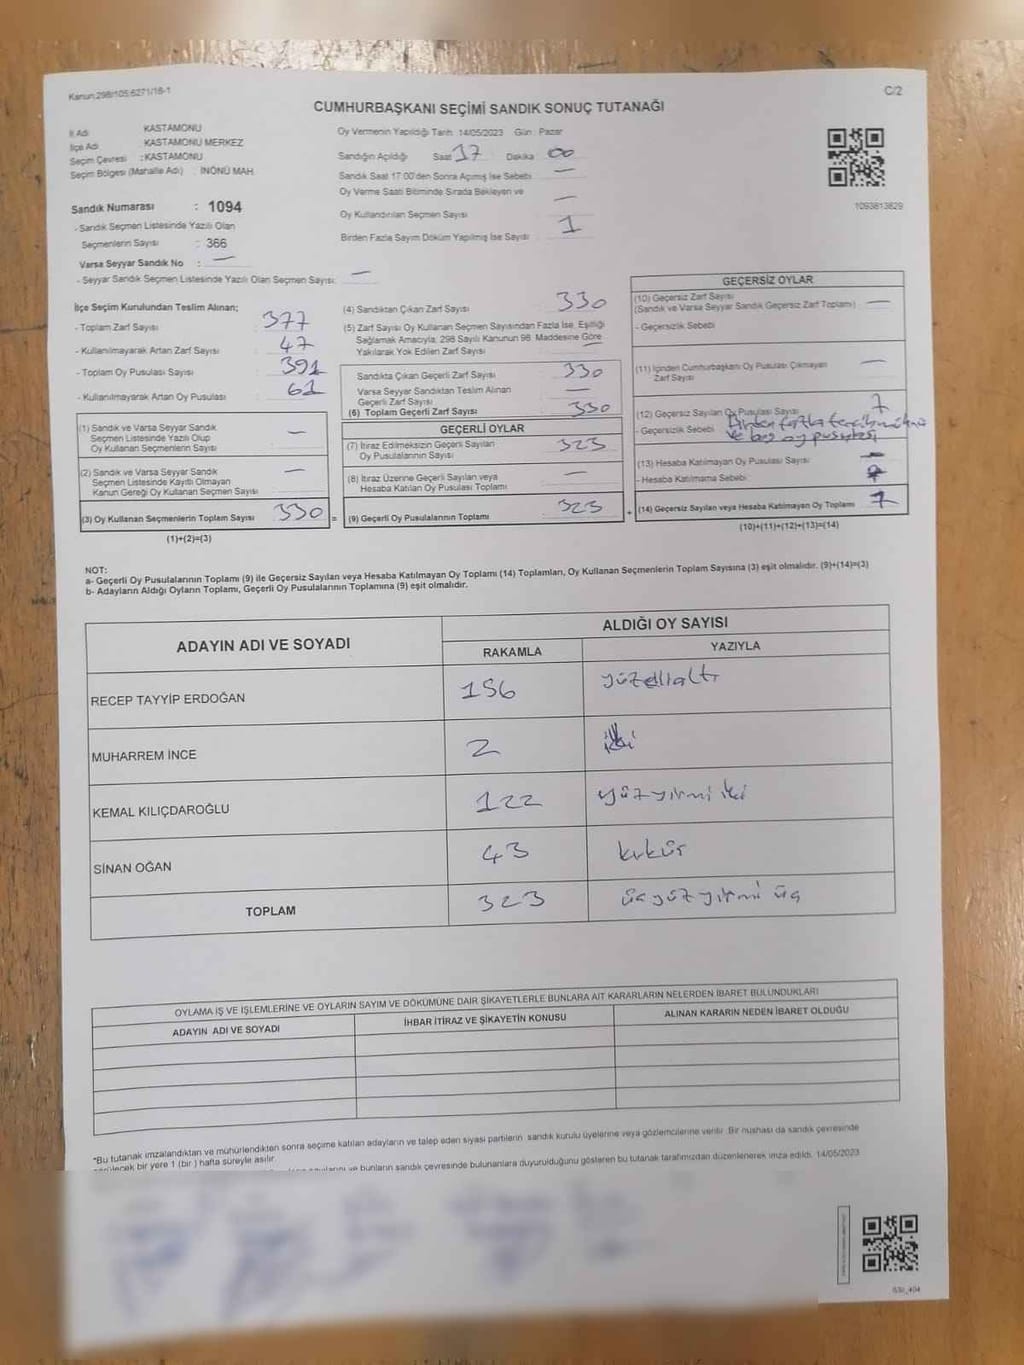 Kanun:298/105;6271/18-1
C/2
CUMHURBAŞKANI SEÇİMİ SANDIK SONUÇ TUTANAĞI
İl Adı KASTAMONU
İlçe Adı KASTAMONU MERKEZ
Seçim Çevresi : KASTAMONU
Seçim Bölgesi (Mahalle Adı) : İNÖNÜ MAH.
Sandık Numarası : 1094
- Sandık Seçmen Listesinde Yazılı Olan
Seçmenlerin Sayısı : 366
Varsa Seyyar Sandık No : —
- Seyyar Sandık Seçmen Listesinde Yazılı Olan Seçmen Sayısı: —
Oy Vermenin Yapıldığı Tarih: 14/05/2023 Gün: Pazar
Sandığın Açıldığı Saat 17 Dakika 00
Sandık Saat 17:00'den Sonra Açımış İse Sebebi —
Oy Verme Saati Bitiminde Sırada Bekleyen ve
Oy Kullandırılan Seçmen Sayısı —
Birden Fazla Sayım Döküm Yapılmış İse Sayısı 1
1093813829
İlçe Seçim Kurulundan Teslim Alınan;
- Toplam Zarf Sayısı 377
- Kullanılmayarak Artan Zarf Sayısı 47
- Toplam Oy Pusulası Sayısı 391
- Kullanılmayarak Artan Oy Pusulası 61
(1) Sandık ve Varsa Seyyar Sandık
Seçmen Listesinde Yazılı Olup
Oy Kullanan Seçmenlerin Sayısı —
(2) Sandık ve Varsa Seyyar Sandık
Seçmen Listesinde Kayıtlı Olmayan
Kanun Gereği Oy Kullanan Seçmen Sayısı —
(3) Oy Kullanan Seçmenlerin Toplam Sayısı 330 =
(1)+(2)=(3)
(4) Sandıktan Çıkan Zarf Sayısı 330
(5) Zarf Sayısı Oy Kullanan Seçmen Sayısından Fazla İse, Eşitliği
Sağlamak Amacıyla; 298 Sayılı Kanunun 98. Maddesine Göre
Yakılarak Yok Edilen Zarf Sayısı —
Sandıkta Çıkan Geçerli Zarf Sayısı 330
Varsa Seyyar Sandıktan Teslim Alınan
Geçerli Zarf Sayısı —
(6) Toplam Geçerli Zarf Sayısı 330
GEÇERLİ OYLAR
(7) İtiraz Edilmeksizin Geçerli Sayılan
Oy Pusulalarının Sayısı 323
(8) İtiraz Üzerine Geçerli Sayılan veya
Hesaba Katılan Oy Pusulası Toplamı —
(9) Geçerli Oy Pusulalarının Toplamı 323 +
GEÇERSİZ OYLAR
(10) Geçersiz Zarf Sayısı
(Sandık ve Varsa Seyyar Sandık Geçersiz Zarf Toplamı) —
- Geçersizlik Sebebi
(11) İçinden Cumhurbaşkanı Oy Pusulası Çıkmayan
Zarf Sayısı —
(12) Geçersiz Sayılan Oy Pusulası Sayısı 7
- Geçersizlik Sebebi Birden fazla tercih
ve boş oy pusulası
(13) Hesaba Katılmayan Oy Pusulası Sayısı —
- Hesaba Katılmama Sebebi
(14) Geçersiz Sayılan veya Hesaba Katılmayan Oy Toplamı 7
(10)+(11)+(12)+(13)=(14)
NOT:
a- Geçerli Oy Pusulalarının Toplamı (9) ile Geçersiz Sayılan veya Hesaba Katılmayan Oy Toplamı (14) Toplamları, Oy Kullanan Seçmenlerin Toplam Sayısına (3) eşit olmalıdır. (9)+(14)=(3)
b- Adayların Aldığı Oyların Toplamı, Geçerli Oy Pusulalarının Toplamına (9) eşit olmalıdır.
ADAYIN ADI VE SOYADI
ALDIĞI OY SAYISI
RAKAMLA YAZIYLA
RECEP TAYYİP ERDOĞAN 156 yüzellialtı
MUHARREM İNCE 2 iki
KEMAL KILIÇDAROĞLU 122 yüzyirmi iki
SİNAN OĞAN 43 kırküç
TOPLAM 323 üçyüzyirmi üç
OYLAMA İŞ VE İŞLEMLERİNE VE OYLARIN SAYIM VE DÖKÜMÜNE DAİR ŞİKAYETLERLE BUNLARA AİT KARARLARIN NELERDEN İBARET BULUNDUKLARI
ADAYIN ADI VE SOYADI İHBAR İTİRAZ VE ŞİKAYETİN KONUSU ALINAN KARARIN NEDEN İBARET OLDUĞU
*Bu tutanak imzalandıktan ve mühürlendikten sonra seçime katılan adayların ve talep eden siyasi partilerin sandık kurulu üyelerine veya gözlemcilerine verilir. Bir nüshası da sandık çevresinde
bir yere 1 (bir) hafta süreyle asılır.
ve bunların sandık çevresinde bulunanlara duyurulduğunu gösteren bu tutanak tarafımızdan düzenlenerek imza edildi. 14/05/2023